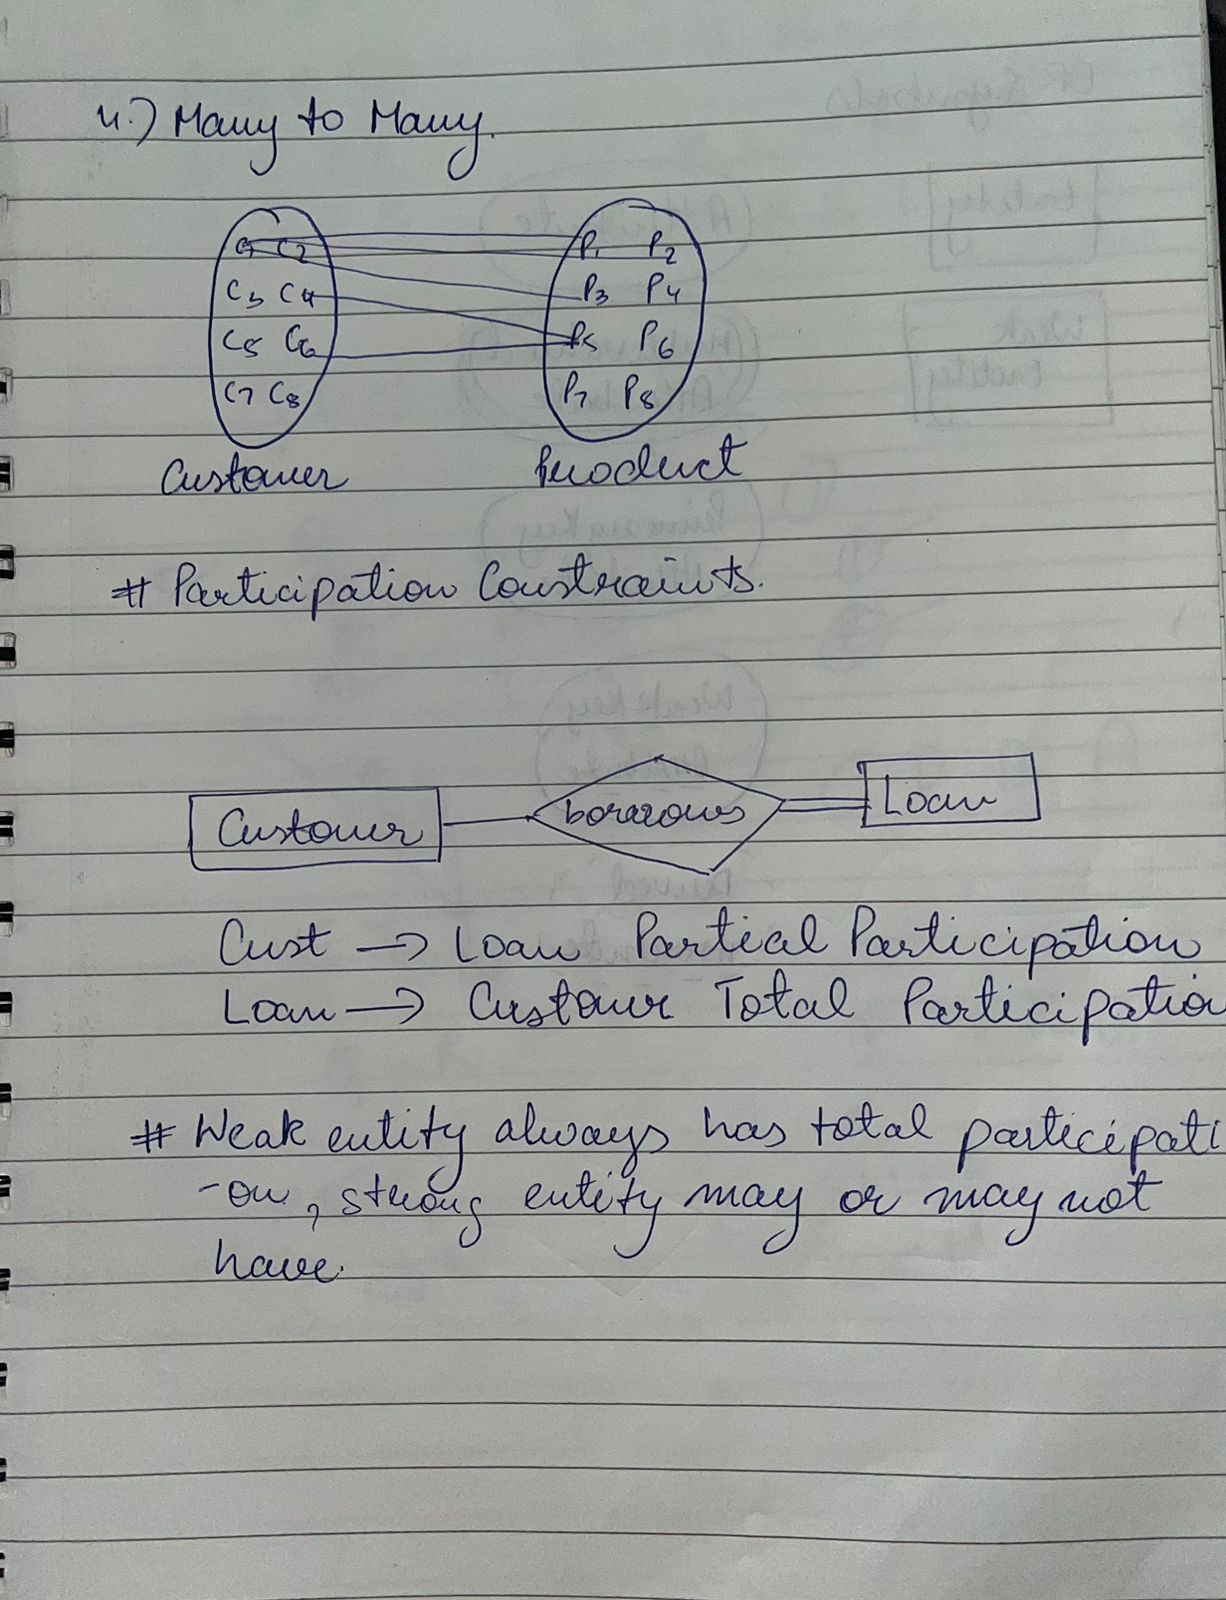 4.) Many to Many.
C1 C2 P1 P2
C3 C4 P3 P4
C5 C6 P5 P6
C7 C8 P7 P8
Customer Product
# Participation Constraints.
Customer borrows Loan
Cust → Loan Partial Participation
Loan → Customer Total Participation
# Weak entity always has total participati
-on, strong entity may or may not
have.